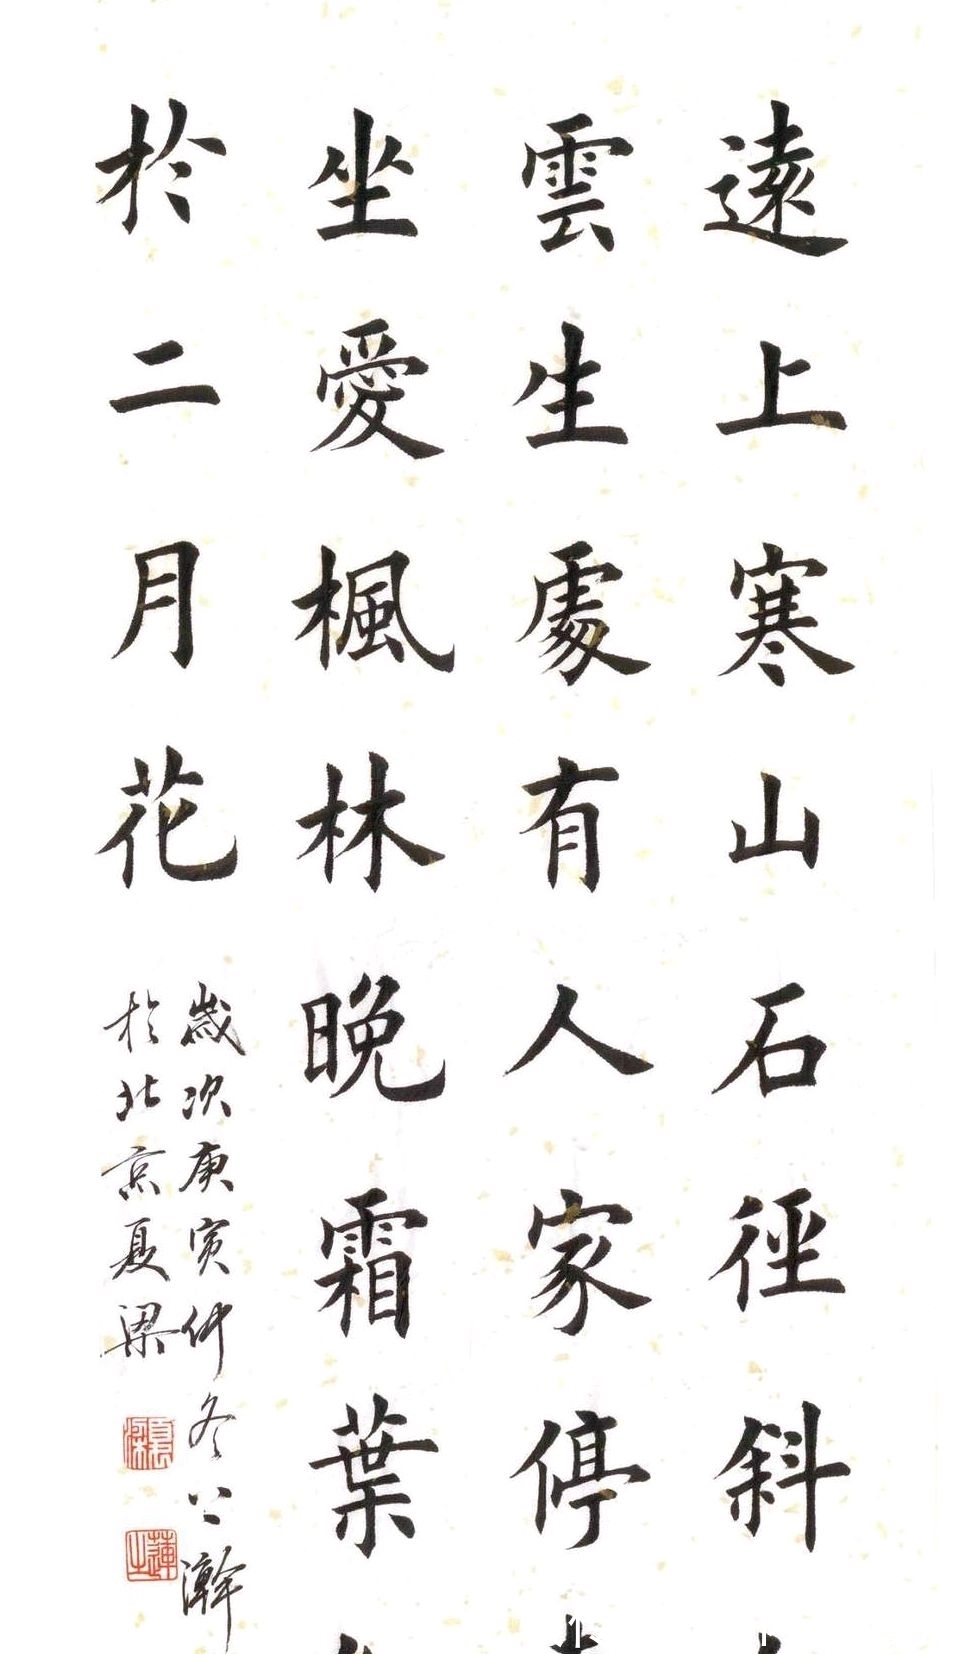 遠上寒山石徑斜
雲生處有人家停
坐愛楓林晚霜葉
於二月花
歲次庚寅仲冬
於北京夏梁